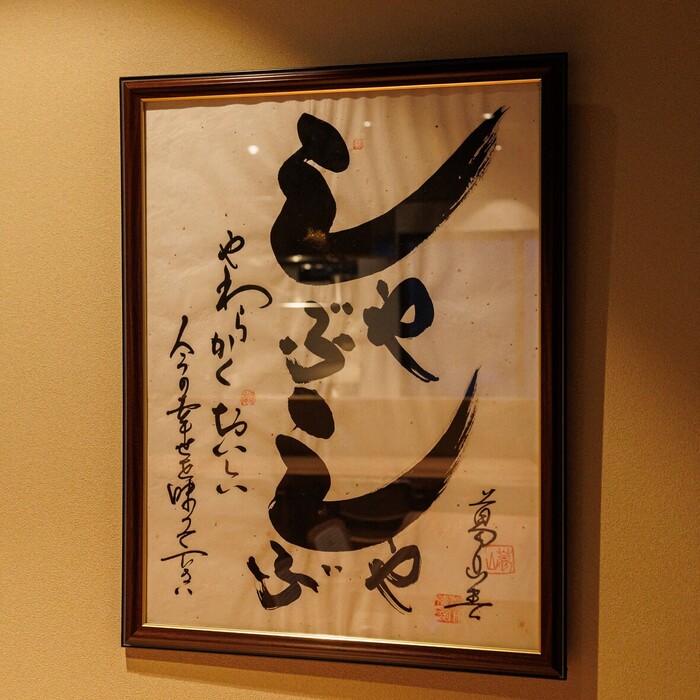 しゃぶ
しゃぶ
やわらかく おいしい
今日の幸せを味わって下さい